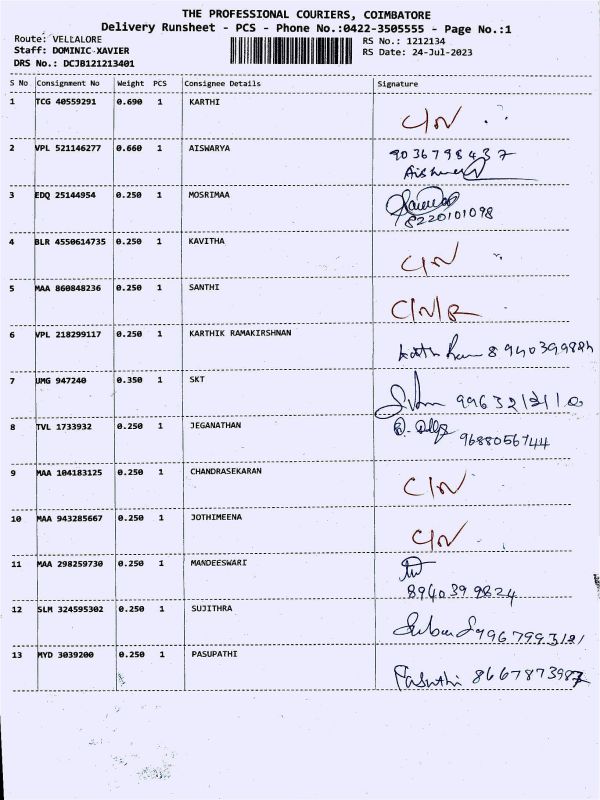 THE PROFESSIONAL COURIERS, COIMBATORE
Delivery Runsheet - PCS - Phone No.:0422-3505555 - Page No.:1
Route: VELLALORE
RS No.: 1212134
Staff: DOMINIC XAVIER
RS Date: 24-Jul-2023
DRS No.: DCJB121213401
S No Consignment No Weight PCS Consignee Details Signature
1 TCG 40559291 0.690 1 KARTHI C/N
2 VPL 521146277 0.660 1 AISWARYA 9036798437
3 EDQ 25144954 0.250 1 MOSRIMAA
8220101098
4 BLR 4550614735 0.250 1 KAVITHA C/N
5 MAA 860848236 0.250 1 SANTHI C/N/R
6 VPL 218299117 0.250 1 KARTHIK RAMAKIRSHNAN
7 UMG 947240 0.350 1 SKT
8 TVL 1733932 0.250 1 JEGANATHAN
9688056744
9 MAA 104183125 0.250 1 CHANDRASEKARAN C/N
10 MAA 943285667 0.250 1 JOTHIMEENA C/N
11 MAA 298259730 0.250 1 MANDEESWARI
8940399824
12 SLM 324595302 0.250 1 SUJITHRA
13 MYD 3039200 0.250 1 PASUPATHI 8667873987